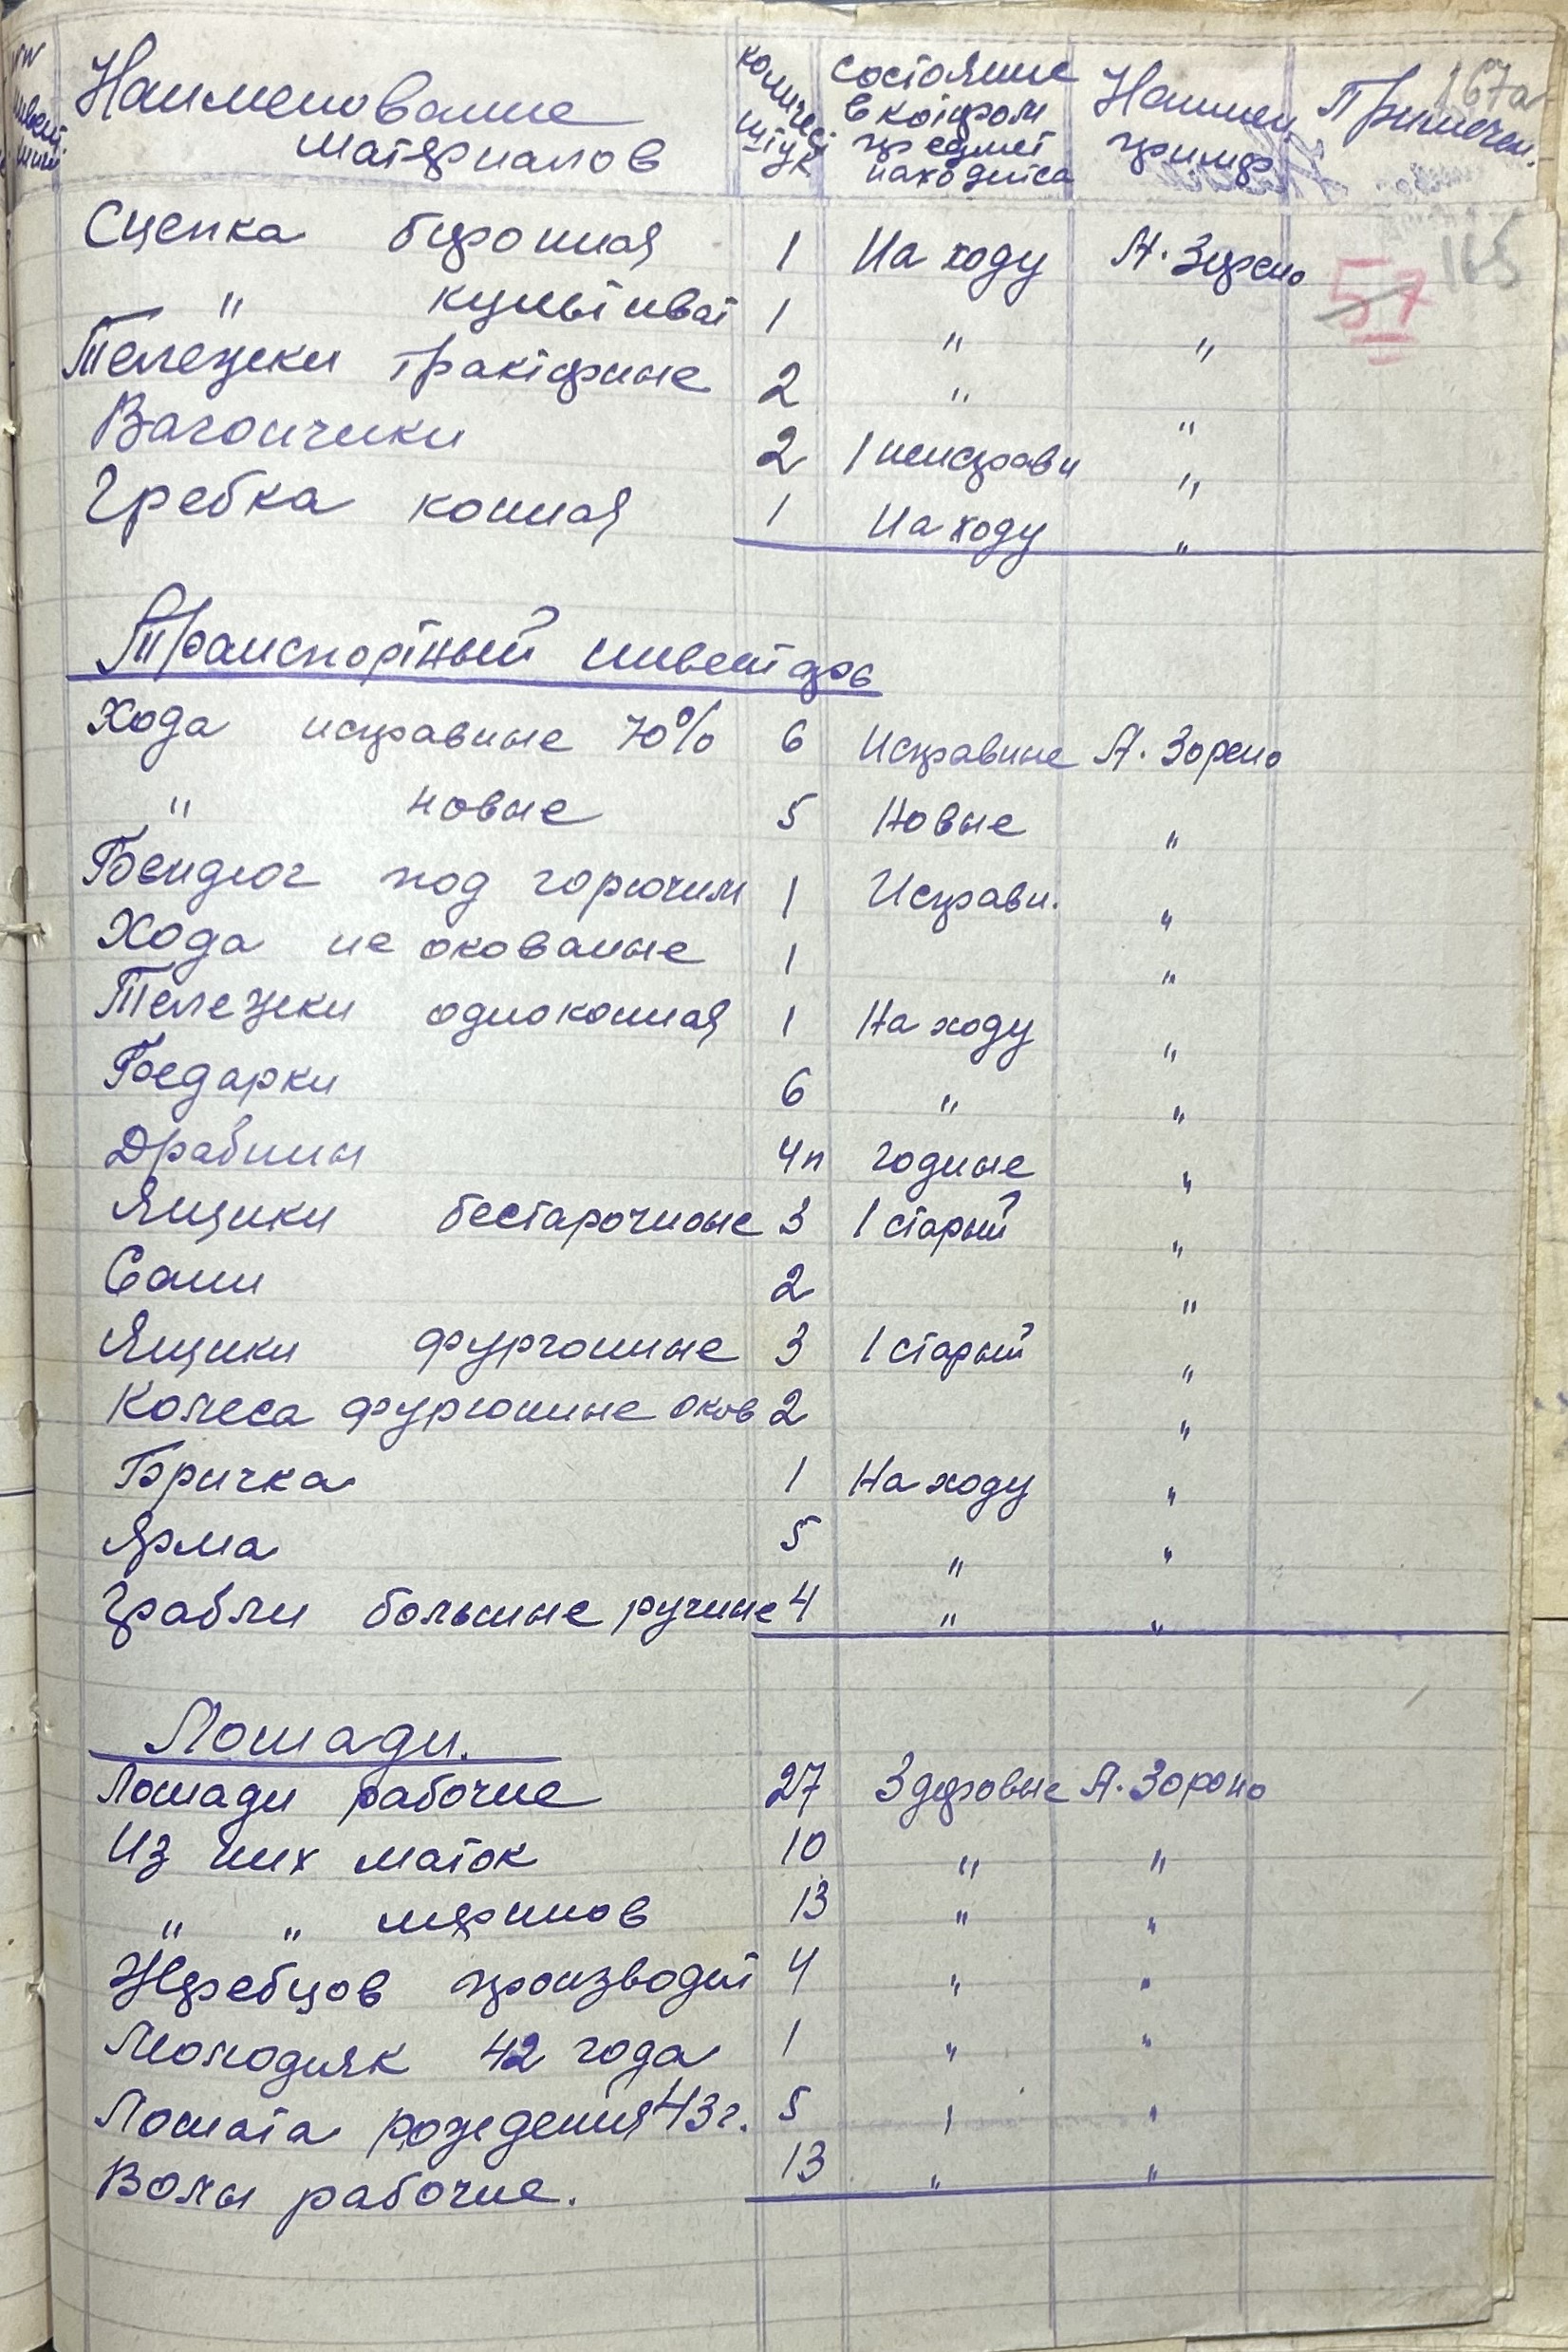 Наименование материалов | количест штук | состояние в котором предмет находится | Наимен пример | Примечан. 167а
Сцепка боронная 1 На ходу А. Зорено 165
" культиват 1 " " 57
Тележки тракторные 2 " "
Вагончики 2 1 неисправн "
Гребка конная 1 На ходу "
Транспортный инвентарь
Хода исправные 70% 6 Исправные А. Зорено
" новые 5 Новые "
Бендюг под горючим 1 Исправн. "
Хода не окованые 1 "
Тележки одноконная 1 На ходу "
Бедарки 6 " "
Драбины 4п годные "
Ящики бестарочные 3 1 старый "
Сани 2 "
Ящики фургонные 3 1 старый "
Колеса фургонные оков 2 "
Бричка 1 На ходу "
Ярма 5 " "
Грабли большие ручные 4 " "
Лошади.
Лошади рабочие 27 Здоровые А. Зорено
Из них маток 10 " "
" " меринов 13 " "
Жеребцов производит 4 " "
Молодняк 42 года 1 " "
Лошата рождения 43 г. 5 " "
Волы рабочие. 13 " "